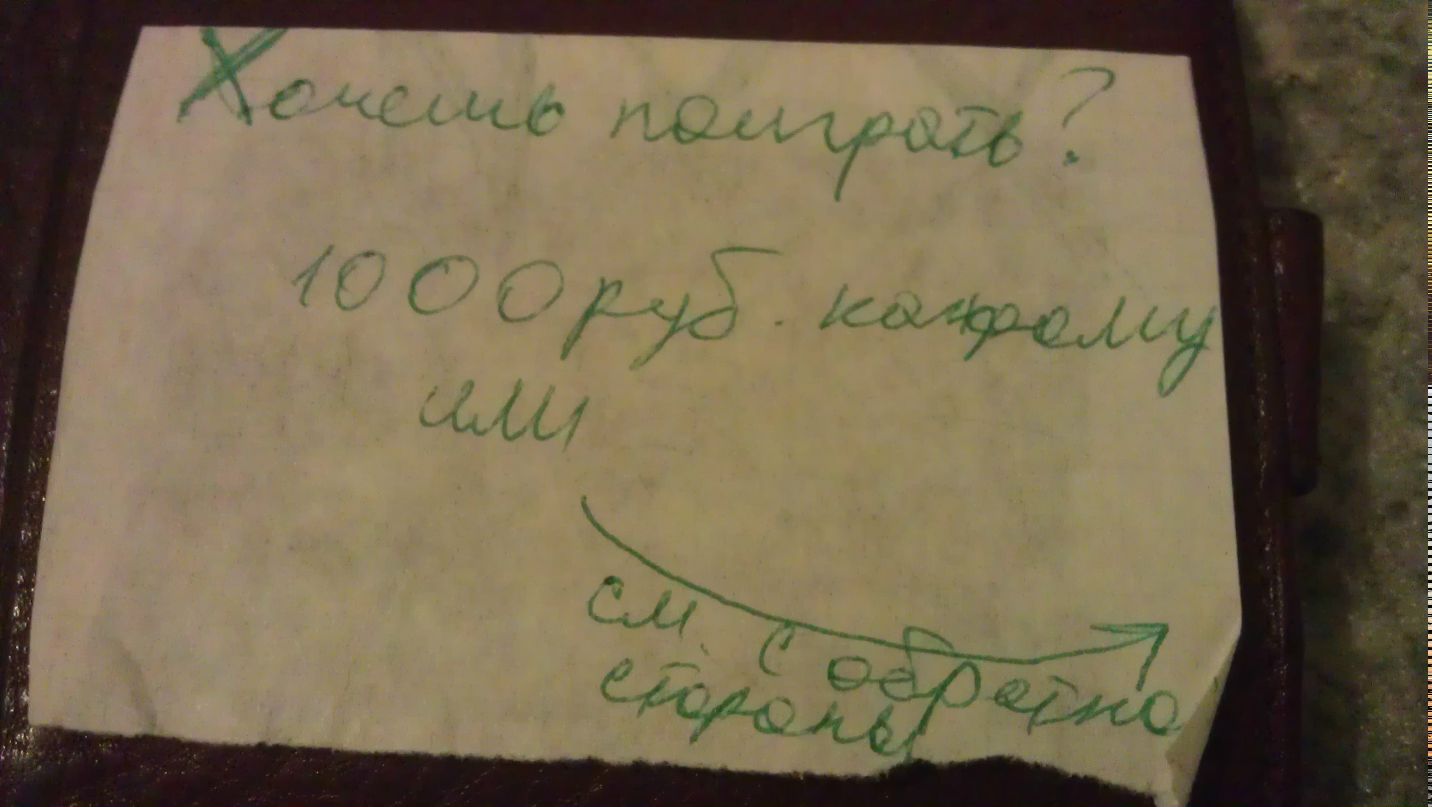 Хочешь поиграть?
1000 руб. каждому
или
см. с обратно
стороны